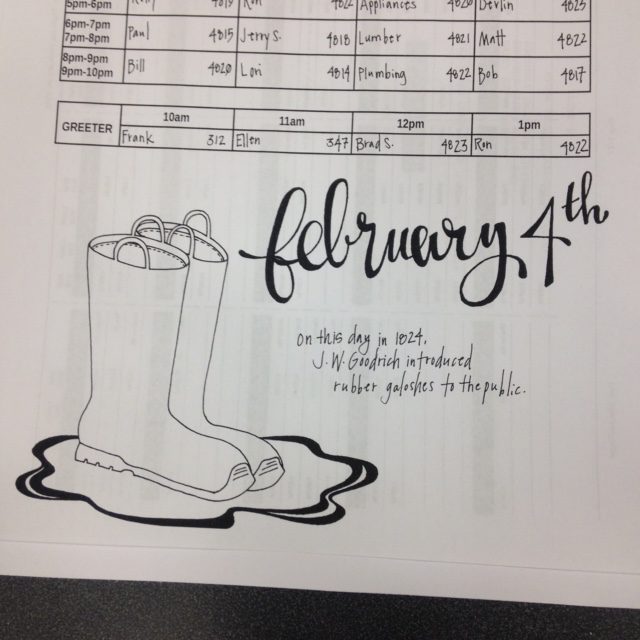 5pm-6pm 4819 Ron 4822 Appliances 4820 Devlin 4823
6pm-7pm
7pm-8pm Paul 4815 Jerry S. 4818 Lumber 4821 Matt 4822
8pm-9pm
9pm-10pm Bill 4820 Lori 4814 Plumbing 4822 Bob 4817
GREETER 10am 11am 12pm 1pm
Frank 312 Ellen 347 Brad S. 4823 Ron 4822
february 4th
on this day in 1824,
J.W. Goodrich introduced
rubber galoshes to the public.